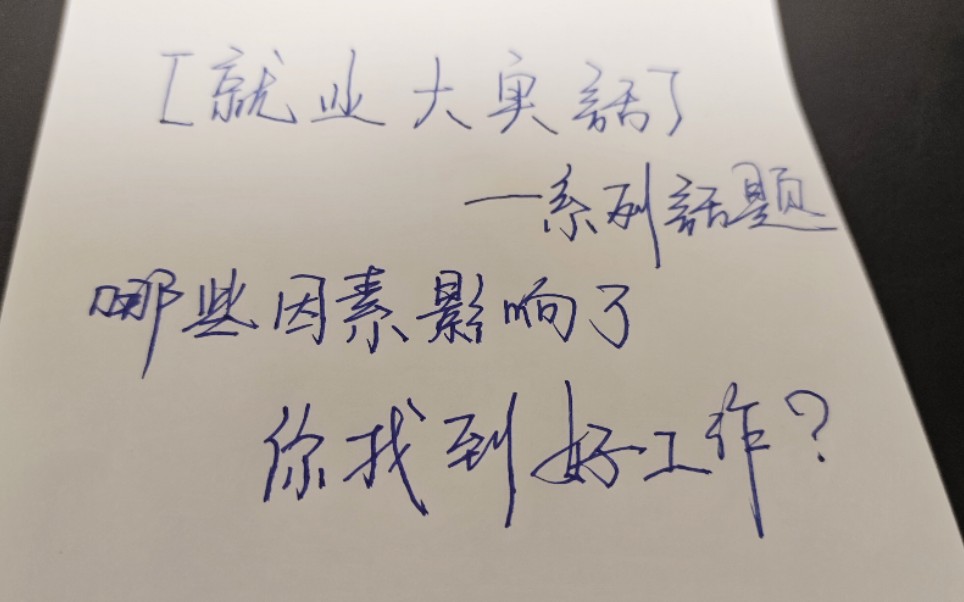 [就业大实話]
一系列話题
哪些因素影响了
你找到好工作?